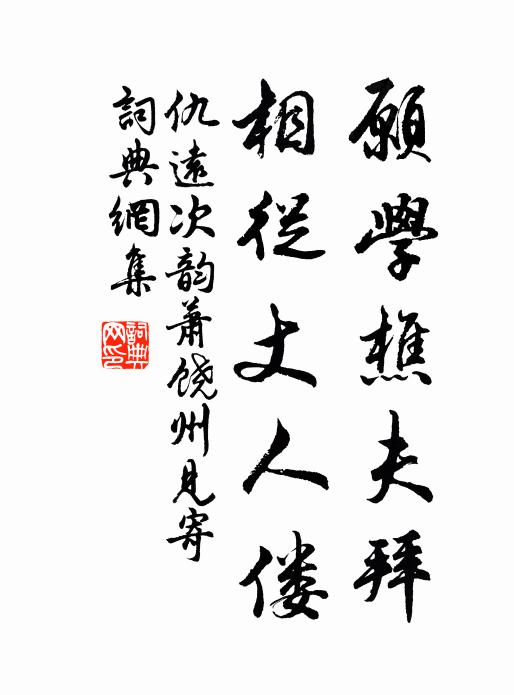 願學樵夫拜
相從丈人僂
仇遠次韵蕭饒州見寄
詞典網集
詞典网印